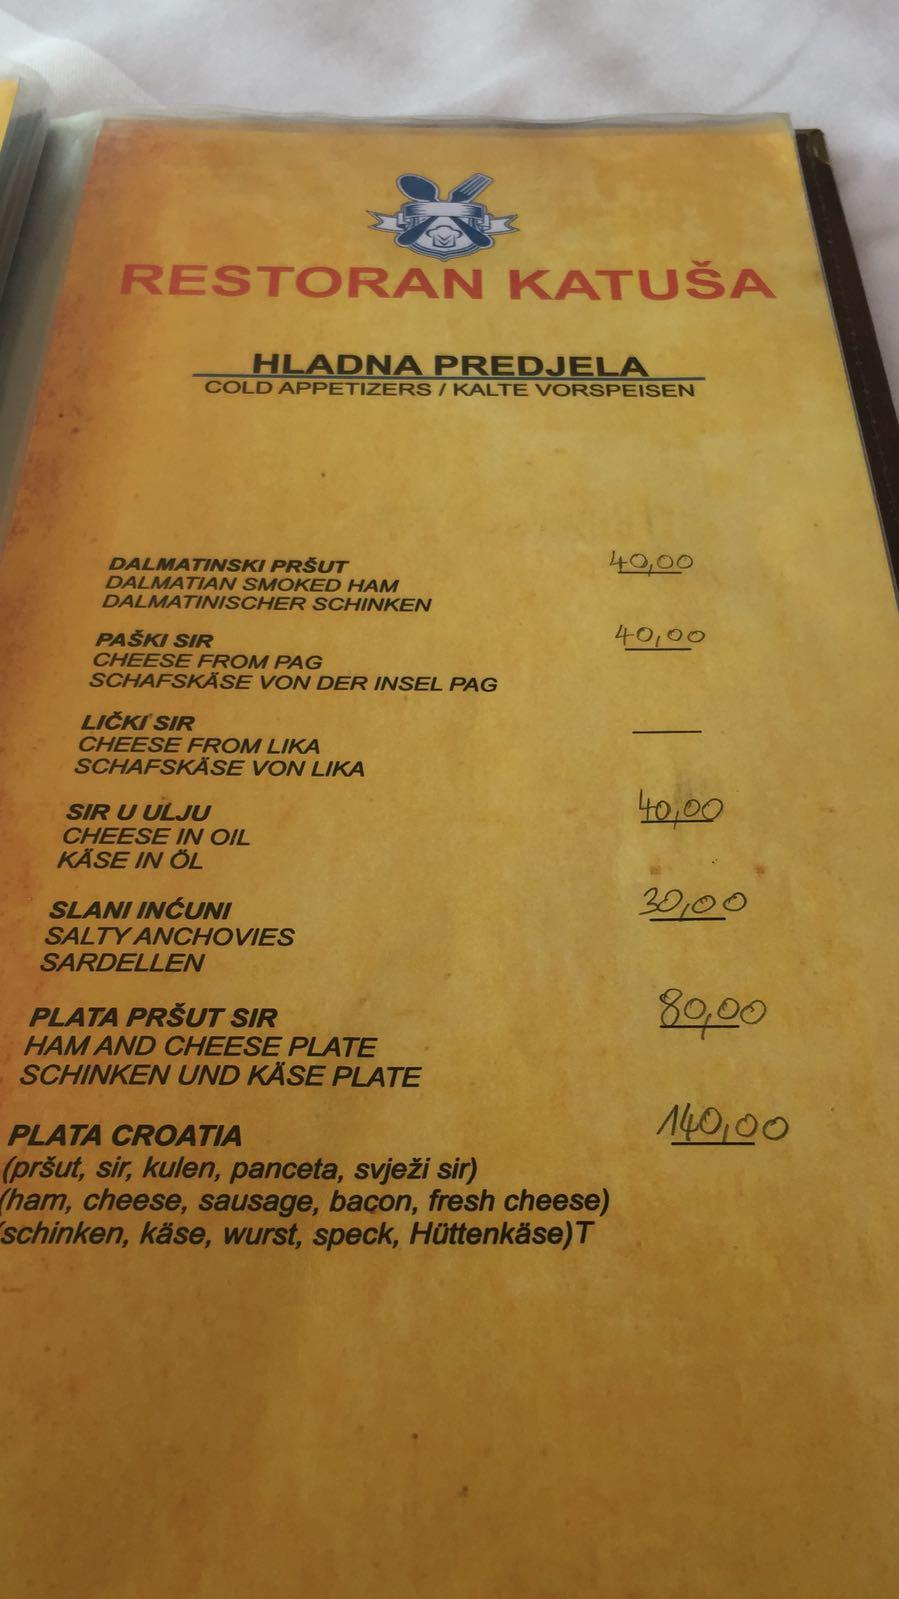 RESTORAN KATUŠA
HLADNA PREDJELA
COLD APPETIZERS / KALTE VORSPEISEN
DALMATINSKI PRŠUT 40,00
DALMATIAN SMOKED HAM
DALMATINISCHER SCHINKEN
PAŠKI SIR 40,00
CHEESE FROM PAG
SCHAFSKÄSE VON DER INSEL PAG
LIČKI SIR
CHEESE FROM LIKA
SCHAFSKÄSE VON LIKA
SIR U ULJU 40,00
CHEESE IN OIL
KÄSE IN ÖL
SLANI INĆUNI 30,00
SALTY ANCHOVIES
SARDELLEN
PLATA PRŠUT SIR 80,00
HAM AND CHEESE PLATE
SCHINKEN UND KÄSE PLATE
PLATA CROATIA 140,00
(pršut, sir, kulen, panceta, svježi sir)
(ham, cheese, sausage, bacon, fresh cheese)
(schinken, käse, wurst, speck, Hüttenkäse)T